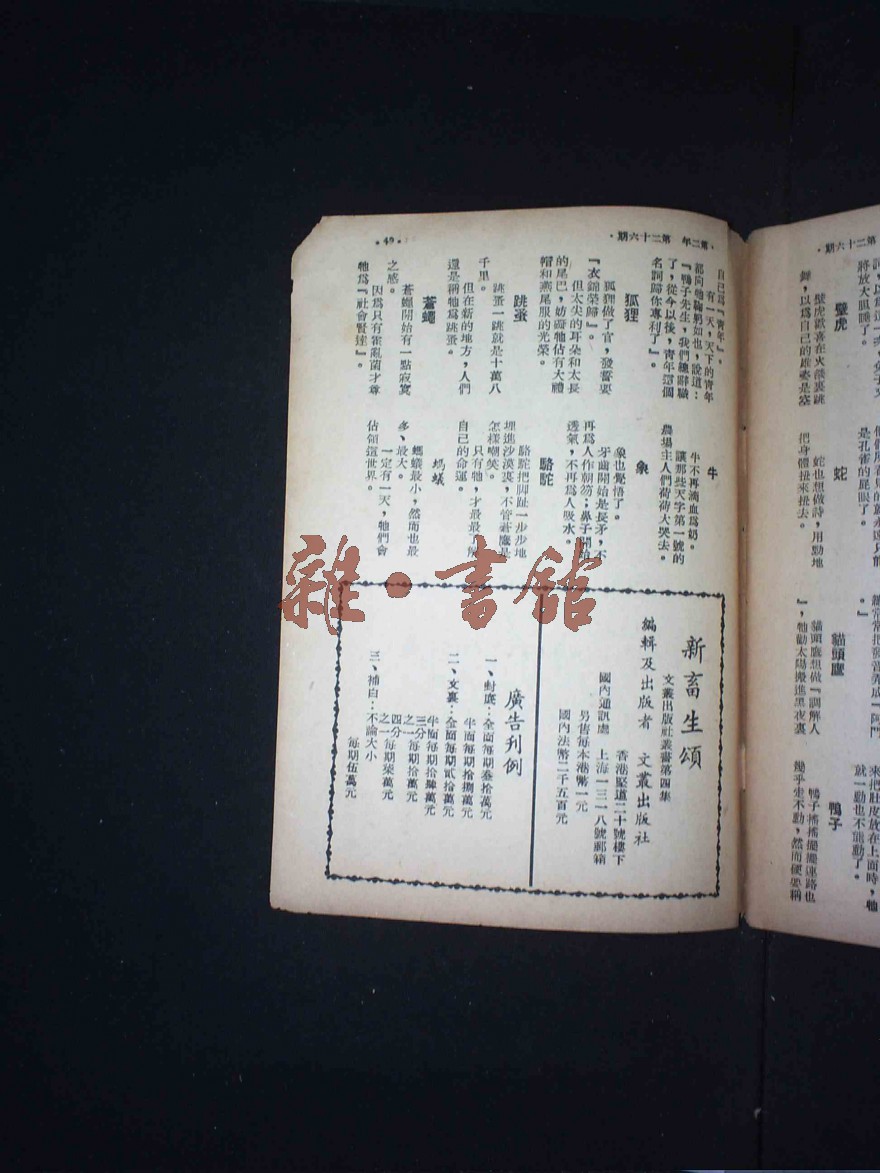 ·第二十六期
將放大眼睛了。
壁虎
壁虎歡喜在火燄裏跳
舞，以爲自己的雄姿是空
是孔雀的屁眼了。
蛇
蛇也想做詩，用點地
把身體扭來扭去。
』。
貓頭鷹
貓頭鷹想做『調解人
』，牠勸太陽搬進黑夜裏
來把肚皮放在上面時，牠
就一動也不能動了。
鴨子
鴨子搖搖擺擺連路也
幾乎走不動，然而硬要稱
·第二年 第二十六期·
·49·
自己爲『青年』。
有一天，天下的青年
都向牠鞠躬如也，說道：
『鴨子先生，我們總辭職
了，從今以後，青年這個
名詞歸你專利了』。
狐狸
狐狸做了官，發誓要
『衣錦榮歸』。
但太尖的耳朵和太長
的尾巴，妨礙牠佔有大禮
帽和燕尾服的光榮。
跳蚤
跳蚤一跳就是十萬八
千里。
但在新的地方，人們
還是稱牠爲跳蚤。
蒼蠅
蒼蠅開始有一點寂寞
之感。
因爲只有霍亂菌才尊
牠爲『社會賢達』。
牛
牛不再滴血爲奶。
讓那些天字第一號的
農場主人們荷荷大哭去。
象
象也覺悟了。
牙齒開始是長矛，不
再爲人作朝笏；鼻子開始
透氣，不再爲人吸水。
駱駝
駱駝把脚趾一步步地
埋進沙漠裏，不管蒼鷹是
怎樣嘲笑。
只有牠，才最最了解
自己的命運。
螞蟻
螞蟻最小，然而也最
多、最大。
一定有一天，牠們會
佔領這世界。
新畜生頌
文叢出版社叢書第四集
編輯及出版者 文叢出版社
香港堅道二十號樓下
國內通訊處 上海一三一八號郵箱
另售每本港幣一元
國內法幣二千五百元
廣告刊例
一、封底：全面每期叁拾萬元
半面每期拾捌萬元
二、文裏：全面每期貳拾萬元
半面每期拾肆萬元
三分之一每期拾萬元
四分之一每期柒萬元
三、補白：不論大小
每期伍萬元
雜·書館